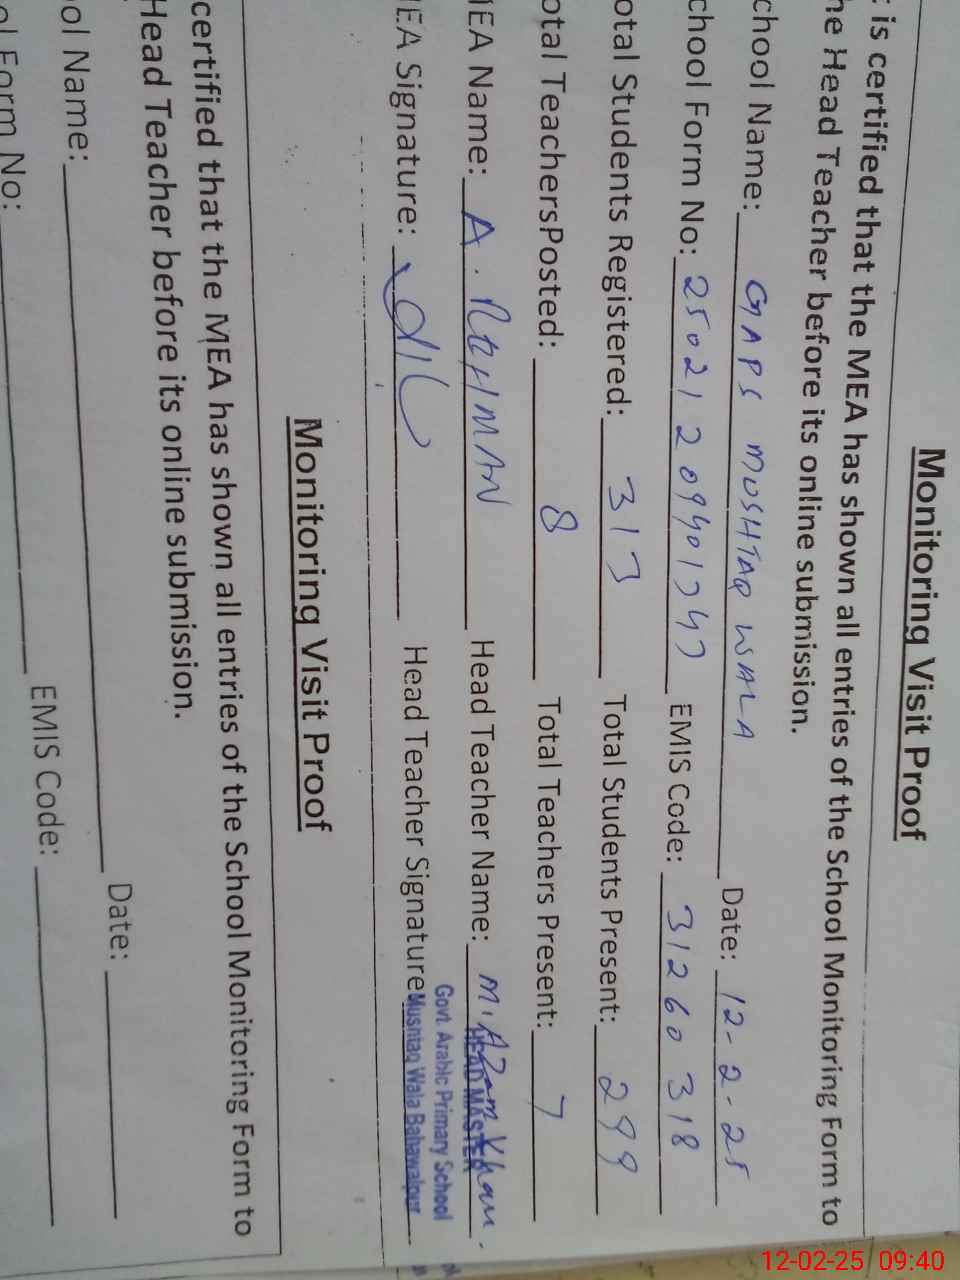 Monitoring Visit Proof
: is certified that the MEA has shown all entries of the School Monitoring Form to
he Head Teacher before its online submission.
chool Name: GAPS MUSHTAQ WALA Date: 12-2-25
chool Form No: EMIS Code: 31260318
otal Students Registered: 313 Total Students Present: 299
otal TeachersPosted: 8 Total Teachers Present: 7
IEA Name: A. REHMAN Head Teacher Name: M. Azam Khan.
HEAD MASTER
Govt. Arabic Primary School
IEA Signature: Head Teacher Signature Mushtaq Wala Bahawalpur
Monitoring Visit Proof
certified that the MEA has shown all entries of the School Monitoring Form to
Head Teacher before its online submission.
ool Name: Date:
ol Form No: EMIS Code:
12-02-25 09:40